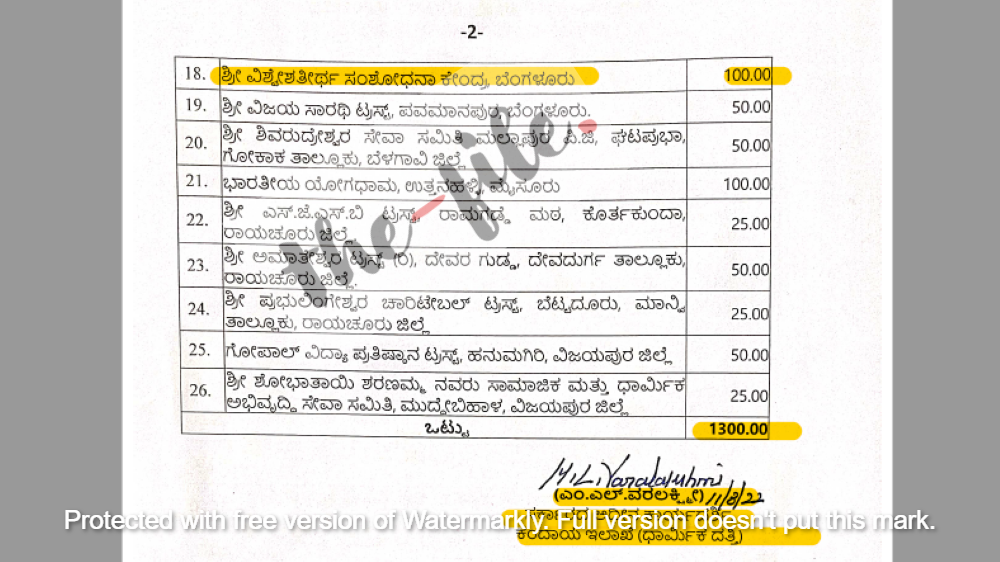 -2-
18. ಶ್ರೀ ವಿಶ್ವೇಶತೀರ್ಥ ಸಂಶೋಧನಾ ಕೇಂದ್ರ, ಬೆಂಗಳೂರು 100.00
19. ಶ್ರೀ ವಿಜಯ ಸಾರಥಿ ಟ್ರಸ್ಟ್, ಪವಮಾನಪುರ, ಬೆಂಗಳೂರು. 50.00
20. ಶ್ರೀ ಶಿವರುದ್ರೇಶ್ವರ ಸೇವಾ ಸಮಿತಿ ಮಲ್ಲಾಪುರ ಪಿ.ಜಿ, ಘಟಪ್ರಭಾ,
ಗೋಕಾಕ ತಾಲ್ಲೂಕು, ಬೆಳಗಾವಿ ಜಿಲ್ಲೆ 50.00
21. ಭಾರತೀಯ ಯೋಗಧಾಮ, ಉತ್ತನಹಳ್ಳಿ, ಮೈಸೂರು 100.00
22. ಶ್ರೀ ಎಸ್.ಜೆ.ಎಸ್.ಬಿ ಟ್ರಸ್ಟ್, ರಾಮಗಡ್ಡೆ ಮಠ, ಕೊರ್ತಕುಂದಾ,
ರಾಯಚೂರು ಜಿಲ್ಲೆ 25.00
23. ಶ್ರೀ ಅಮಾತೇಶ್ವರ ಟ್ರಸ್ಟ್ (ರಿ), ದೇವರ ಗುಡ್ಡ, ದೇವದುರ್ಗ ತಾಲ್ಲೂಕು,
ರಾಯಚೂರು ಜಿಲ್ಲೆ. 50.00
24. ಶ್ರೀ ಪ್ರಭುಲಿಂಗೇಶ್ವರ ಚಾರಿಟೇಬಲ್ ಟ್ರಸ್ಟ್, ಬೆಟ್ಟದೂರು, ಮಾನ್ವಿ
ತಾಲ್ಲೂಕು, ರಾಯಚೂರು ಜಿಲ್ಲೆ 25.00
25. ಗೋಪಾಲ್ ವಿದ್ಯಾ ಪ್ರತಿಷ್ಠಾನ ಟ್ರಸ್ಟ್, ಹನುಮಗಿರಿ, ವಿಜಯಪುರ ಜಿಲ್ಲೆ 50.00
26. ಶ್ರೀ ಶೋಭಾತಾಯಿ ಶರಣಮ್ಮ ನವರು ಸಾಮಾಜಿಕ ಮತ್ತು ಧಾರ್ಮಿಕ
ಅಭಿವೃದ್ಧಿ ಸೇವಾ ಸಮಿತಿ, ಮುದ್ದೇಬಿಹಾಳ, ವಿಜಯಪುರ ಜಿಲ್ಲೆ 25.00
ಒಟ್ಟು 1300.00
the-file.
M.L.Varalakshmi
(ಎಂ.ಎಲ್.ವರಲಕ್ಷ್ಮೀ) 11/8/22
ಸರ್ಕಾರದ ಅಧೀನ ಕಾರ್ಯದರ್ಶಿ
ಕಂದಾಯ ಇಲಾಖೆ (ಧಾರ್ಮಿಕ ದತ್ತಿ)
Protected with free version of Watermarkly. Full version doesn't put this mark.